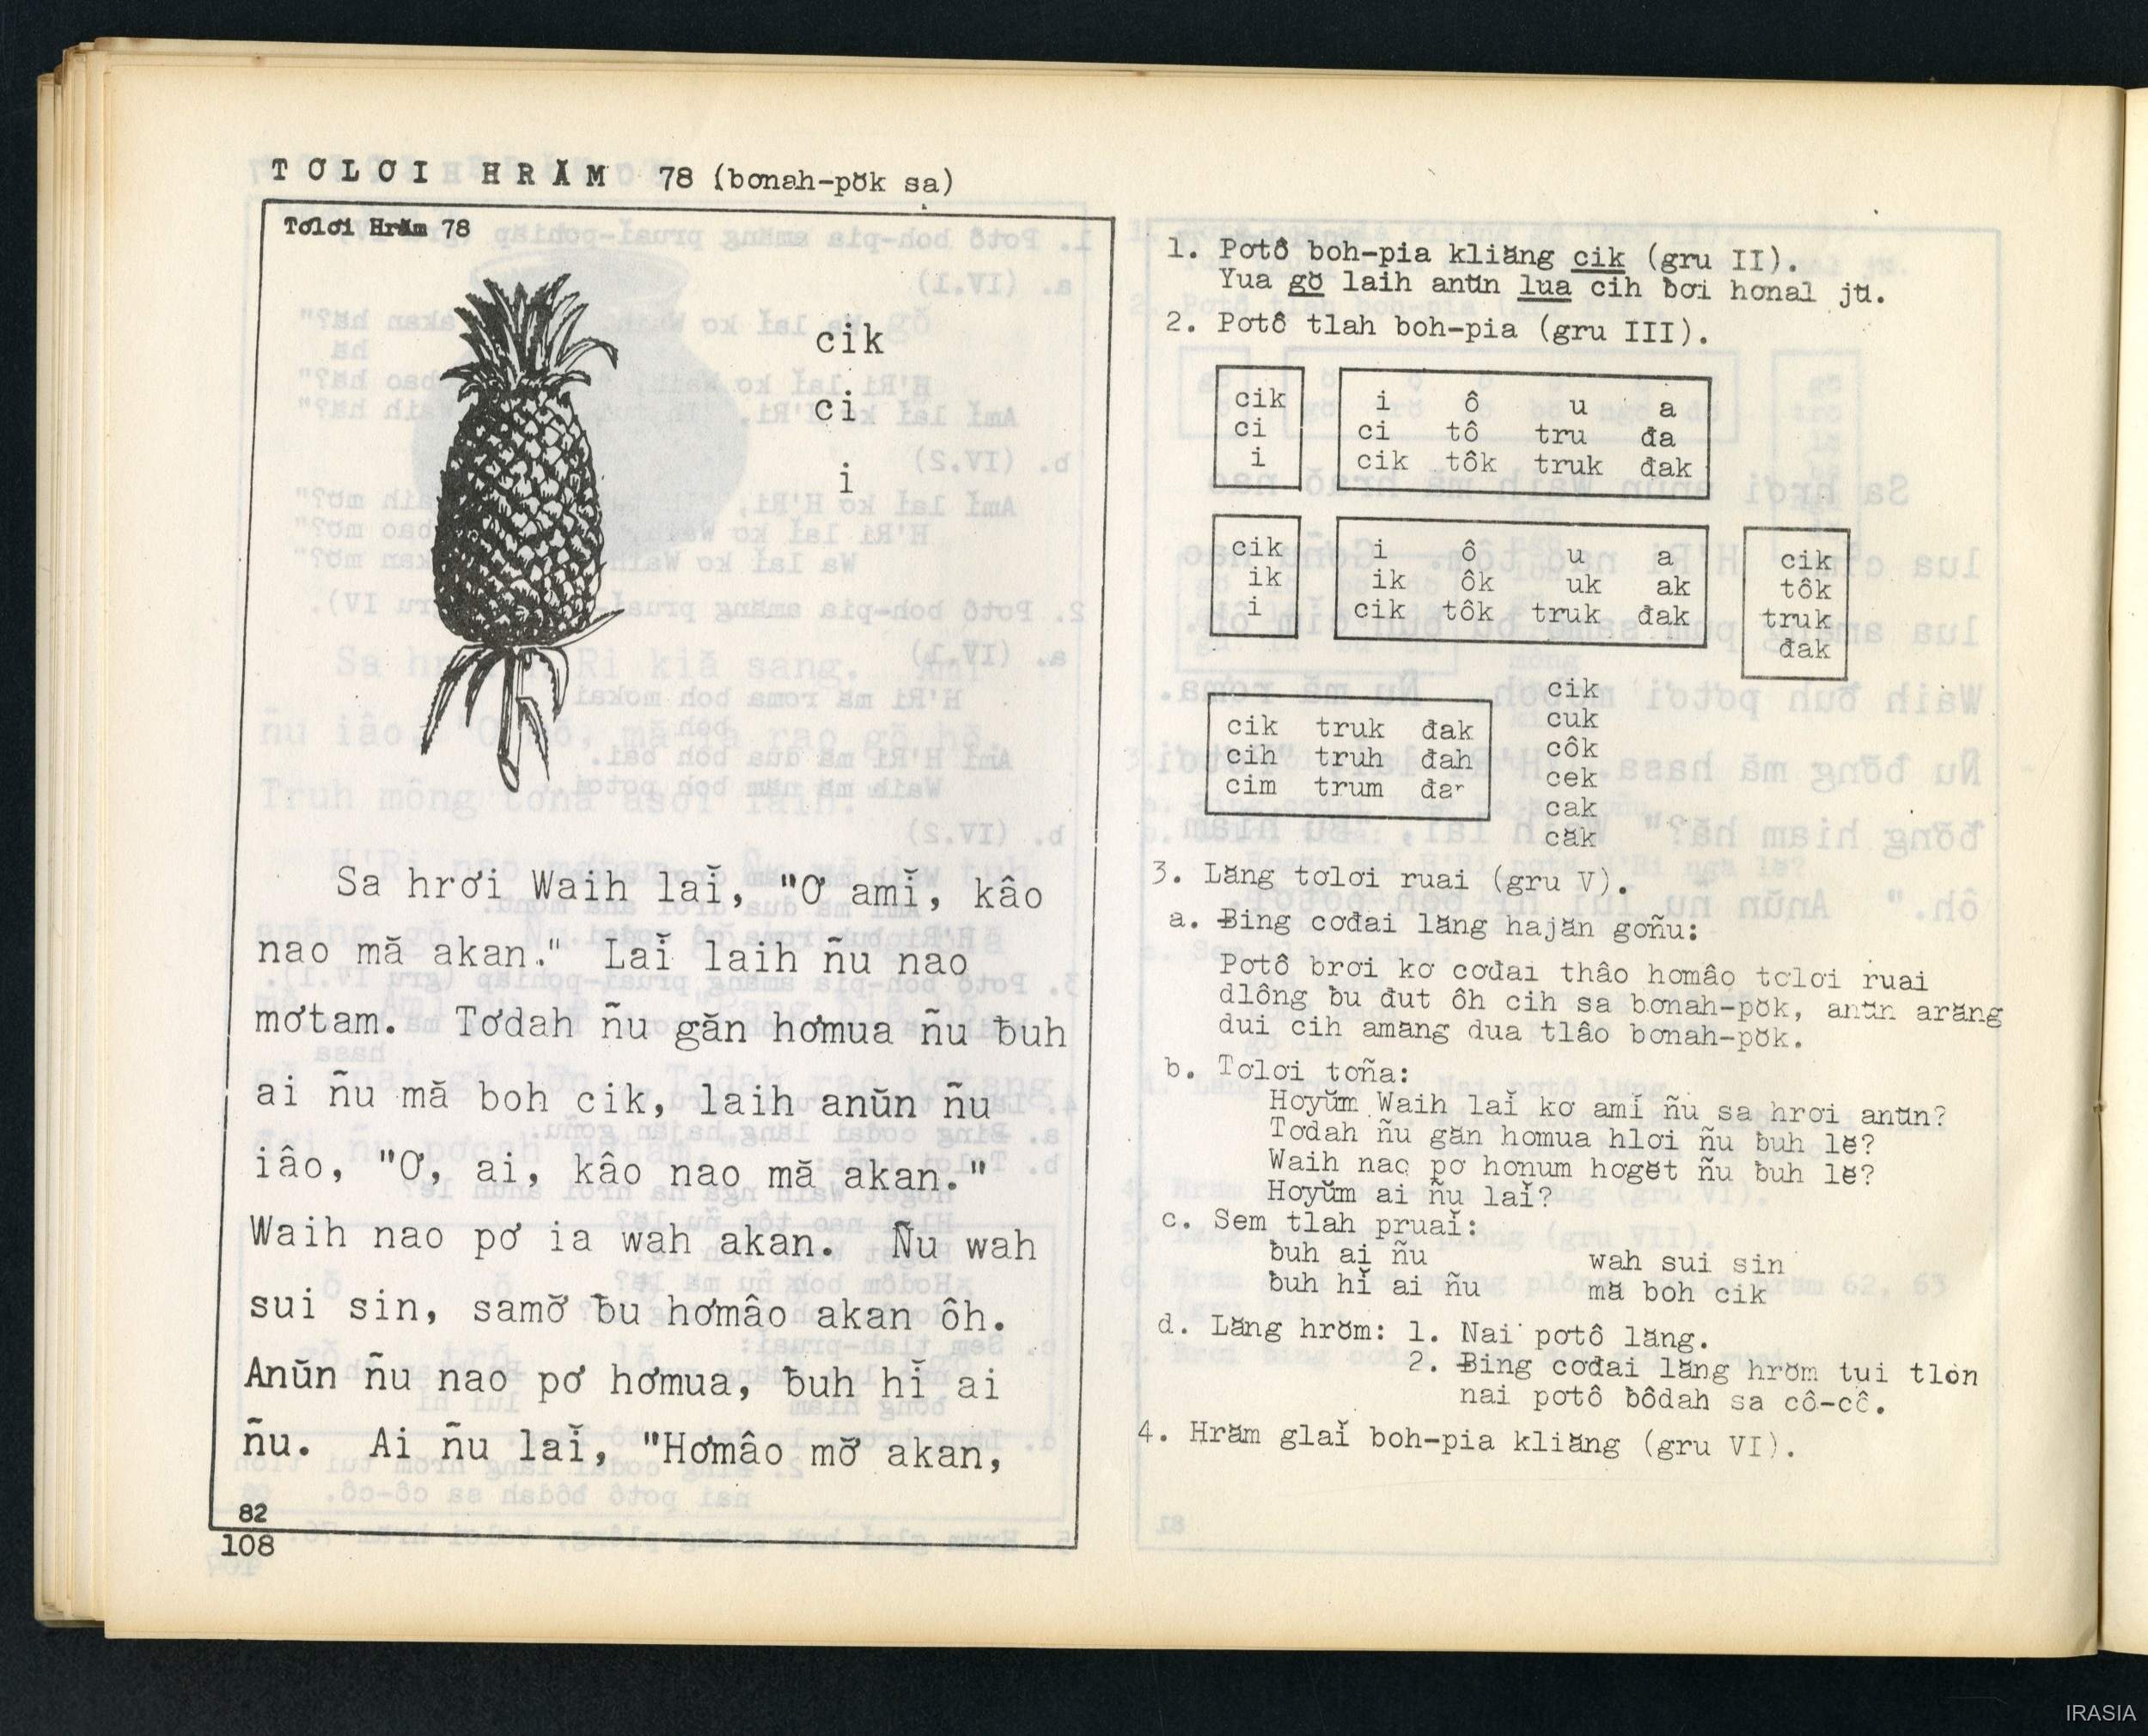 TƠLƠI HRĂM 78 (bơnah-pŏk sa)
Tơlơi Hrăm 78
cik
ci
i
Sa hrơi Waih laĭ, "Ơ amĭ, kâo
nao mă akan." Laĭ laih ñu nao
mơtam. Tơdah ñu găn hơmua ñu ƀuh
ai ñu mă boh cik, laih anŭn ñu
iâo, "Ơ, ai, kâo nao mă akan."
Waih nao pơ ia wah akan. Ñu wah
sui sin, samơ̆ ƀu hơmâo akan ôh.
Anŭn ñu nao pơ hơmua, ƀuh hĭ ai
ñu. Ai ñu laĭ, "Hơmâo mơ̆ akan,
82
108
1. Pơtô boh-pia kliăng cik (gru II).
Yua gŏ laih anŭn lua cih ƀơi hơnal jŭ.
2. Pơtô tlah boh-pia (gru III).
cik i ô u a
ci ci tô tru đa
i cik tôk truk đak
cik i ô u a cik
ik ik ôk uk ak tôk
i cik tôk truk đak truk
đak
cik truk đak cik
cih truh đah cuk
cim trum đar côk
cek
cak
căk
3. Lăng tơlơi ruai (gru V).
a. Ƀing cơđai lăng hajăn gơñu:
Pơtô brơi kơ cơđai thâo hơmâo tơlơi ruai
dlông ƀu đut ôh cih sa bơnah-pŏk, anŭn arăng
dui cih amăng dua tlâo bơnah-pŏk.
b. Tơlơi tơña:
Hơyŭm Waih laĭ kơ amĭ ñu sa hrơi anŭn?
Tơdah ñu găn hơmua hlơi ñu ƀuh lĕ?
Waih nao pơ hơnum hơgĕt ñu ƀuh lĕ?
Hơyŭm ai ñu laĭ?
c. Sem tlah pruaĭ:
ƀuh ai ñu wah sui sin
ƀuh hĭ ai ñu mă boh cik
d. Lăng hrŏm: 1. Nai pơtô lăng.
2. Ƀing cơđai lăng hrŏm tui tlôn
nai pơtô ƀôdah sa cô-cô.
4. Hrăm glaĭ boh-pia kliăng (gru VI).
IRASIA